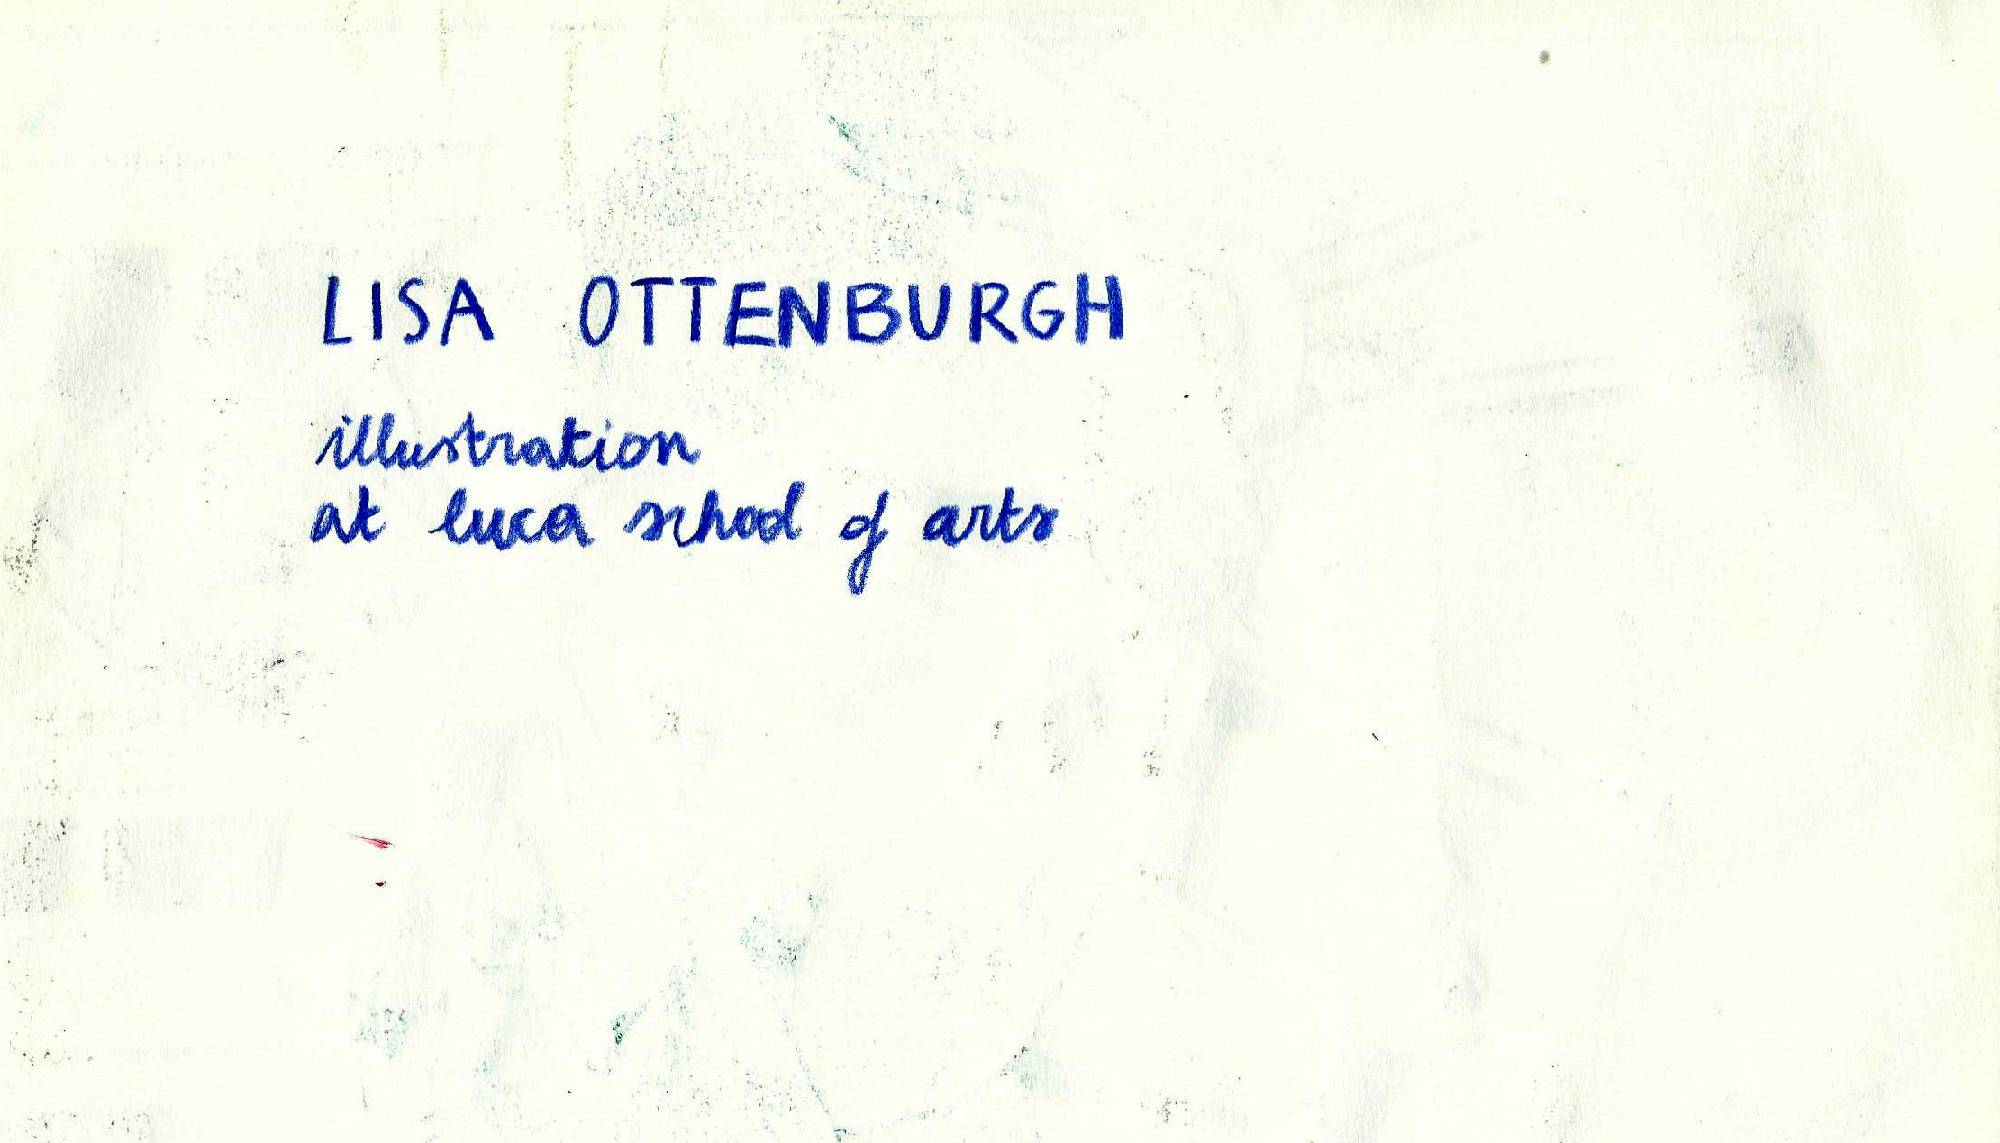 LISA OTTENBURGH
illustration
at luca school of arts